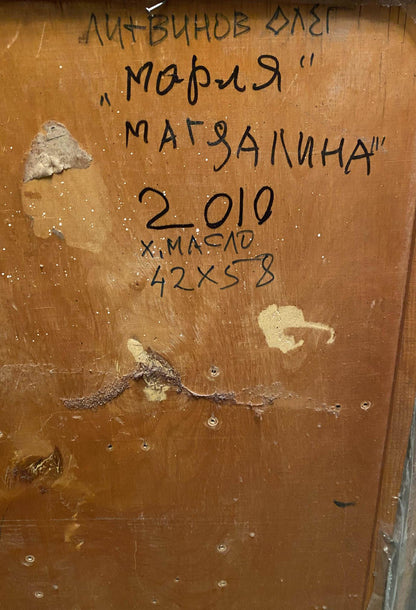 ЛИТВИНОВ ОЛЕГ
"Марля
Магдалина"
2010
Х, МАСЛО
42Х58